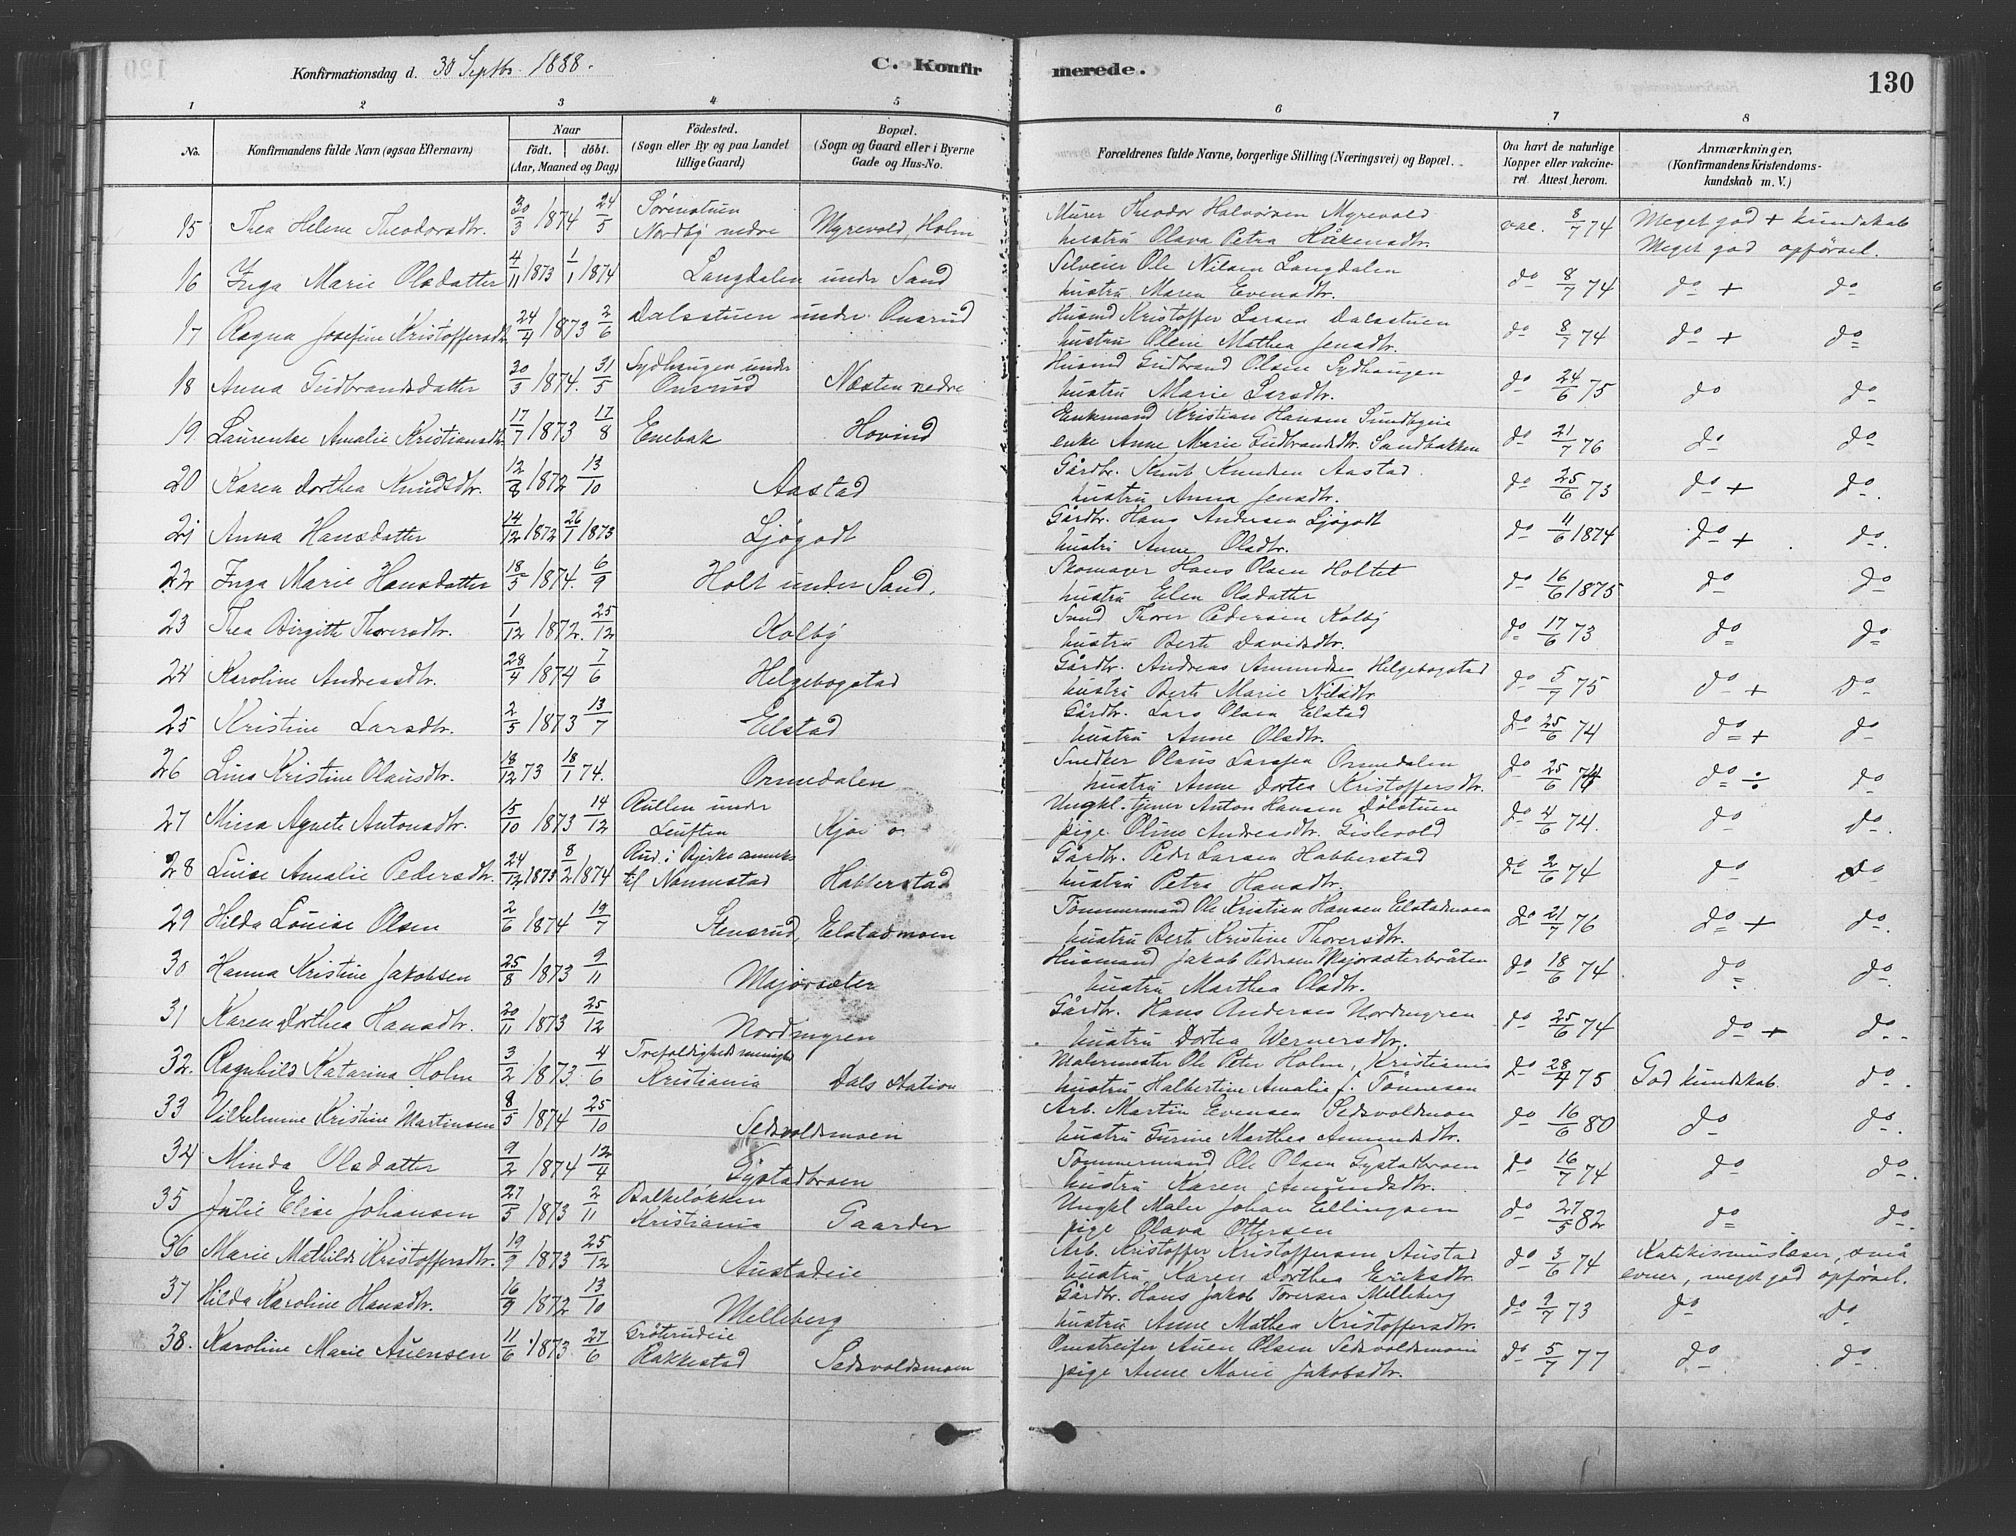 Konfirmationsdag d. 30 Septbr. 1888.
C. Konfirmerede.
130
1 2 3 4 5 6 7 8
No. Konfirmandens fulde Navn (ogsaa Efternavn) Naar Født. døbt. (Aar, Maaned og Dag) Fødested. (Sogn eller By og paa Landet tillige Gaard) Bopæl. (Sogn og Gaard eller i Byerne Gade og Hus-No. Forældrenes fulde Navne, borgerlige Stilling (Næringsvei) og Bopæl. Om havt de naturlige Kopper eller vakcineret. Attest herom. Anmærkninger, (Konfirmandens Kristendomskundskab m. V.)
15 Thea Helene Theodorsdtr. 30/3 1874 24/5 Sørenstuen Nordby nedre Myrevold, Holm Murer Theodor Halvorsen Myrevold hustru Olava Petra Håkensdtr. vac. 8/7 74 Meget god + kundskab Meget god opførsel.
16 Inga Marie Olsdatter 4/11 1873 1/1 1874 Langdalen under Sand Selveier Ole Nilsen Langdalen hustru Maren Evensdtr. do 8/7 74 do + do
17 Ragna Josefine Kristoffersdtr. 24/4 1873 2/6 Dalsstuen under Onsrud Husmd Kristoffer Larsen Dalsstuen hustru Oline Mathea Jensdtr. do 8/7 74 do + do
18 Anna Gudbrandsdatter 20/5 1874. 31/5 Sydhaugen under Onsrud Næsten nedre Husmd Gudbrand Olsen Sydhaugen hustru Marie Larsdtr. do 24/6 75 do do
19. Laurentse Amalie Kristiansdtr. 17/7 1873 17/8 Enebak Hovind Enkemand Kristian Hansen Sundbyeie enke Anne Marie Gudbrandsdtr. Sandbakken do 21/7 76 do do
20 Karen Dorthea Knudsdtr. 12/8 1872 13/10 Aastad Gårdbr. Knut Knudsen Aastad. hustru Anna Jensdtr. do 25/6 73 do + do.
21 Anna Hansdatter 14/12 1872 26/1 1873 Ljøgodt Gårdbr. Hans Andersen Ljøgodt hustru Anne Olsdtr. do 11/6 1874 do + do.
22 Inga Marie Hansdatter 18/5 1874. 6/9 Holt under Sand. Skomager Hans Olsen Holtet hustru Elen Olsdatter do 16/6 1875 do do
23 Thea Birgitte Thoresdtr. 1/12 1872. 25/12 Kolby Smd Thorer Pedersen Kolby hustru Berte Davidsdtr. do 17/6 73 do do
24 Karoline Andreasdtr. 28/4 1874 7/6 Helgebogstad Gårdbr. Andreas Amundsen Helgebogstad hustru Berte Marie Nilsdtr do 5/7 75 do + do
25 Kristine Larsdtr. 2/5 1873 13/7 Elstad Gårdbr. Lars Olsen Elstad hustru Anne Olsdtr. do 25/6 74 do + do
26 Lina Kristine Olausdtr. 18/12 73 18/1 74. Ormedalen Snedker Olaus Larsen Ormedalen hustru Anne Dortea Kristoffersdtr. do 25/6 74 do ÷ do
27 Mina Agnete Antonsdtr. 15/10 1873 14/12 Rullen under Leuften Kjos Ungkl. tjener Anton Hansen Dølstuen pige Oline Andreasdtr. Gislevold do 4/6 74. do do.
28 Luise Amalie Pedersdtr. 24/12 1873 8/2 1874 Rud i Bjerke annex til Nannestad Habberstad Gårdbr. Peder Larsen Habberstad hustru Petra Hansdtr. do 2/6 74 do do
29 Hilda Louise Olsen 2/6 1874 19/7 Stensrud, Elstadmoen Tømmermand Ole Kristian Hansen Elstadmoen hustru Berte Kristine Thorersdtr. do 21/7 76 do + do.
30 Hanna Kristine Jakobsen 25/8 1873 9/11 Majorsæter Husmand Jakob Pedersen Majorsæterbråten hustru Marthea Olsdtr. do 18/6 74 do do.
31 Karen Dorthea Hansdtr. 20/11 1873 25/12 Nordmyren Gårdbr. Hans Andersen Nordmyren hustru Dortea Wernersdtr. do 25/6 74 do + do.
32. Ragnhild Katarina Holm 3/2 1873. 4/6 Trefoldigheds menigh Kristiania Dals Station Malermester Ole Peter Holm, Kristiania hustru Halbertine Amalia f. Tønnesen do 28/4 75 God kundskab. do.
33 Vilhelmine Kristine Martinsen 8/5 1874 25/10 Sedsvoldsmoen Arb. Martin Evensen Sedsvoldsmoen hustru Gurine Marthea Amundsdtr. do 16/6 80 do do.
34 Minda Olsdatter 9/2 1874 12/4 Gystadbroen Tømmermand Ole Olsen Gystadbroen hustru Karen Amundsdtr. do 16/7 74 do do.
35 Julie Elise Johansen 27/5 1873 2/11 Balkeløkken Kristiania Gaarder Ungkl Maler Johan Ellingsen pige Olava Ottersen do 27/5 82 do do.
36 Marie Mathilde Kristoffersdtr. 19/9 1873 25/12 Austadeie Arb. Kristoffer Kristoffersen Austad hustru Karen Dorthea Eriksdtr. do 3/6 74 Katekismuslæser, små evner, meget god opførsel.
37 Hilda Karoline Hansdtr. 16/9 1872 13/10 Melleberg Gårdbr. Hans Jakob Toresen Melleberg hustru Anne Mathea Kristoffersdtr. do 9/7 73 do do.
38. Karoline Marie Auensen 11/6 1873 27/6 Grøterudeie Rakkestad Sedsvoldsmoen Omstreifer Auen Olsen Sedsvoldsmoen pige Anne Marie Jakobsdtr. do 5/7 77 do do.